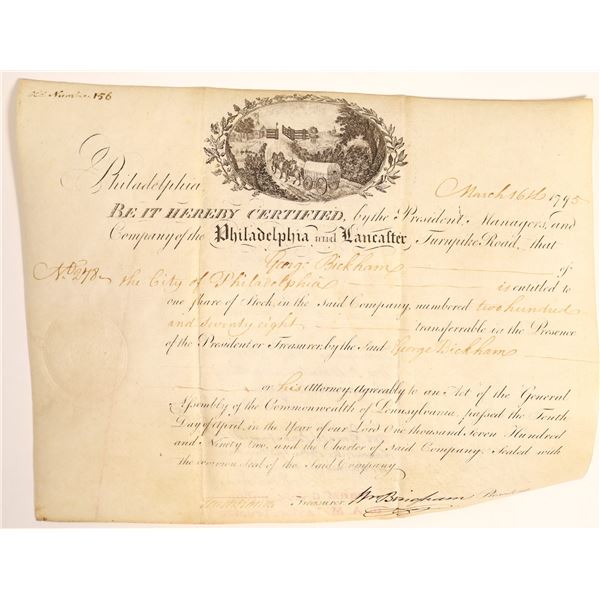 Old Number 156
Philadelphia March 16th 1795
BE IT HEREBY CERTIFIED, by the President, Managers, and
Company of the Philadelphia and Lancaster Turnpike Road, that
George Bickham of
No. 278 the City of Philadelphia is entitled to
one share of Stock, in the Said Company, numbered two hundred
and seventy eight transferrable in the Presence
of the President or Treasurer, by the Said George Bickham
or his Attorney, Agreeably to an Act of the General
Assembly of the Commonwealth of Pennsylvania, passed the Tenth
Day of April, in the Year of our Lord One thousand Seven Hundred
and Ninety two, and the Charter of Said Company, Sealed with
the common Seal of the Said Company
Treasurer Wm Bingham